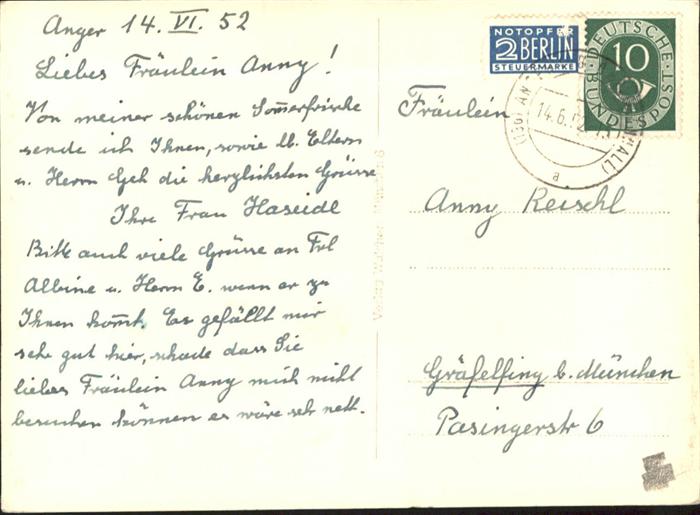 Anger 14. VI. 52
Liebes Fräulein Anny!
Von meiner schönen Sommerfrische
sende ich Ihnen, sowie lb. Eltern
u. Herrn Geh die herzlichsten Grüsse
Ihre Frau Haseidl
Bitte auch viele Grüsse an Frl
Albine u. Herrn E. wenn er zu
Ihnen kommt. Es gefällt mir
sehr gut hier, schade dass Sie
liebes Fräulein Anny mich nicht
besuchen können es wäre sehr nett.
NOTOPFER
2 BERLIN
STEUERMARKE
DEUTSCHE BUNDESPOST
10
14.6.52
a
Fräulein
Anny Reischl
Gräfelfing b. München
Pasingerstr 6
Verlag